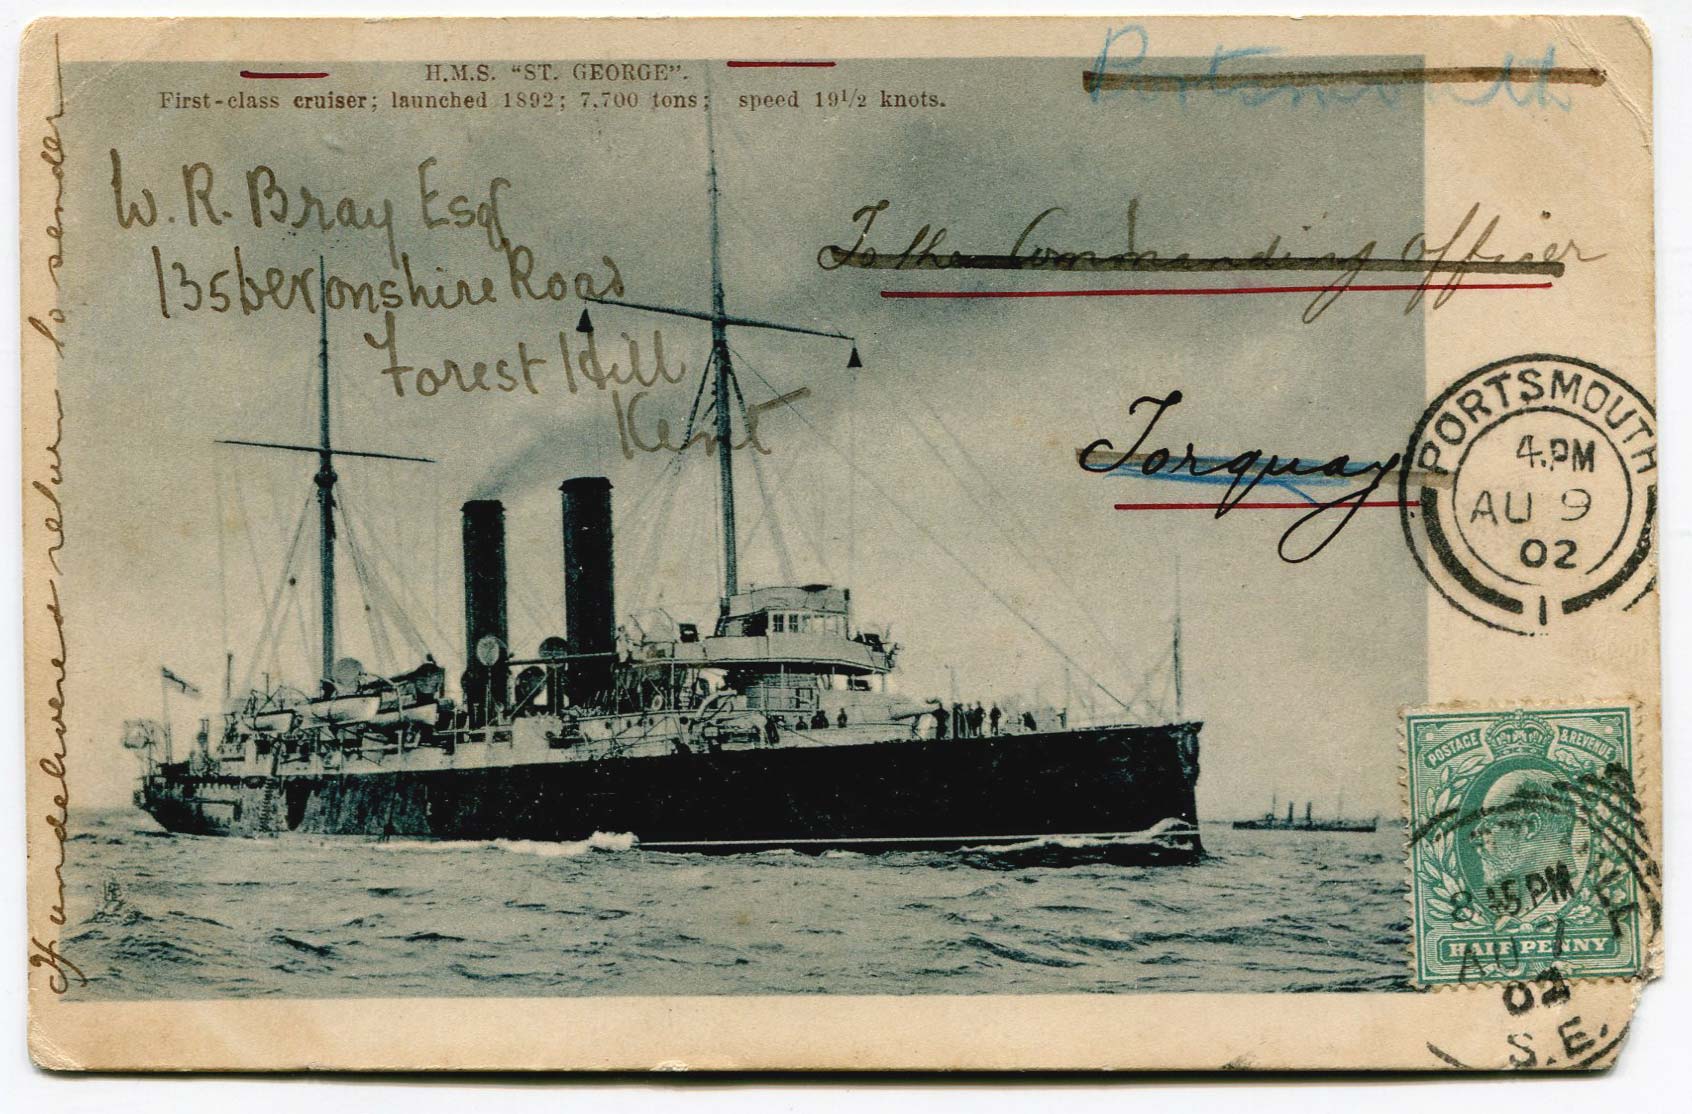 H.M.S. "ST. GEORGE".
First-class cruiser; launched 1892; 7,700 tons; speed 19½ knots.
Portsmouth
W. R. Bray Esq
135 Devonshire Road
Forest Hill
Kent
To the Commanding Officer
Torquay
If undelivered return to sender
PORTSMOUTH
4.PM
AU 9
02
1
POSTAGE & REVENUE
HALF PENNY
8.15 PM
AU 7
02
S.E.